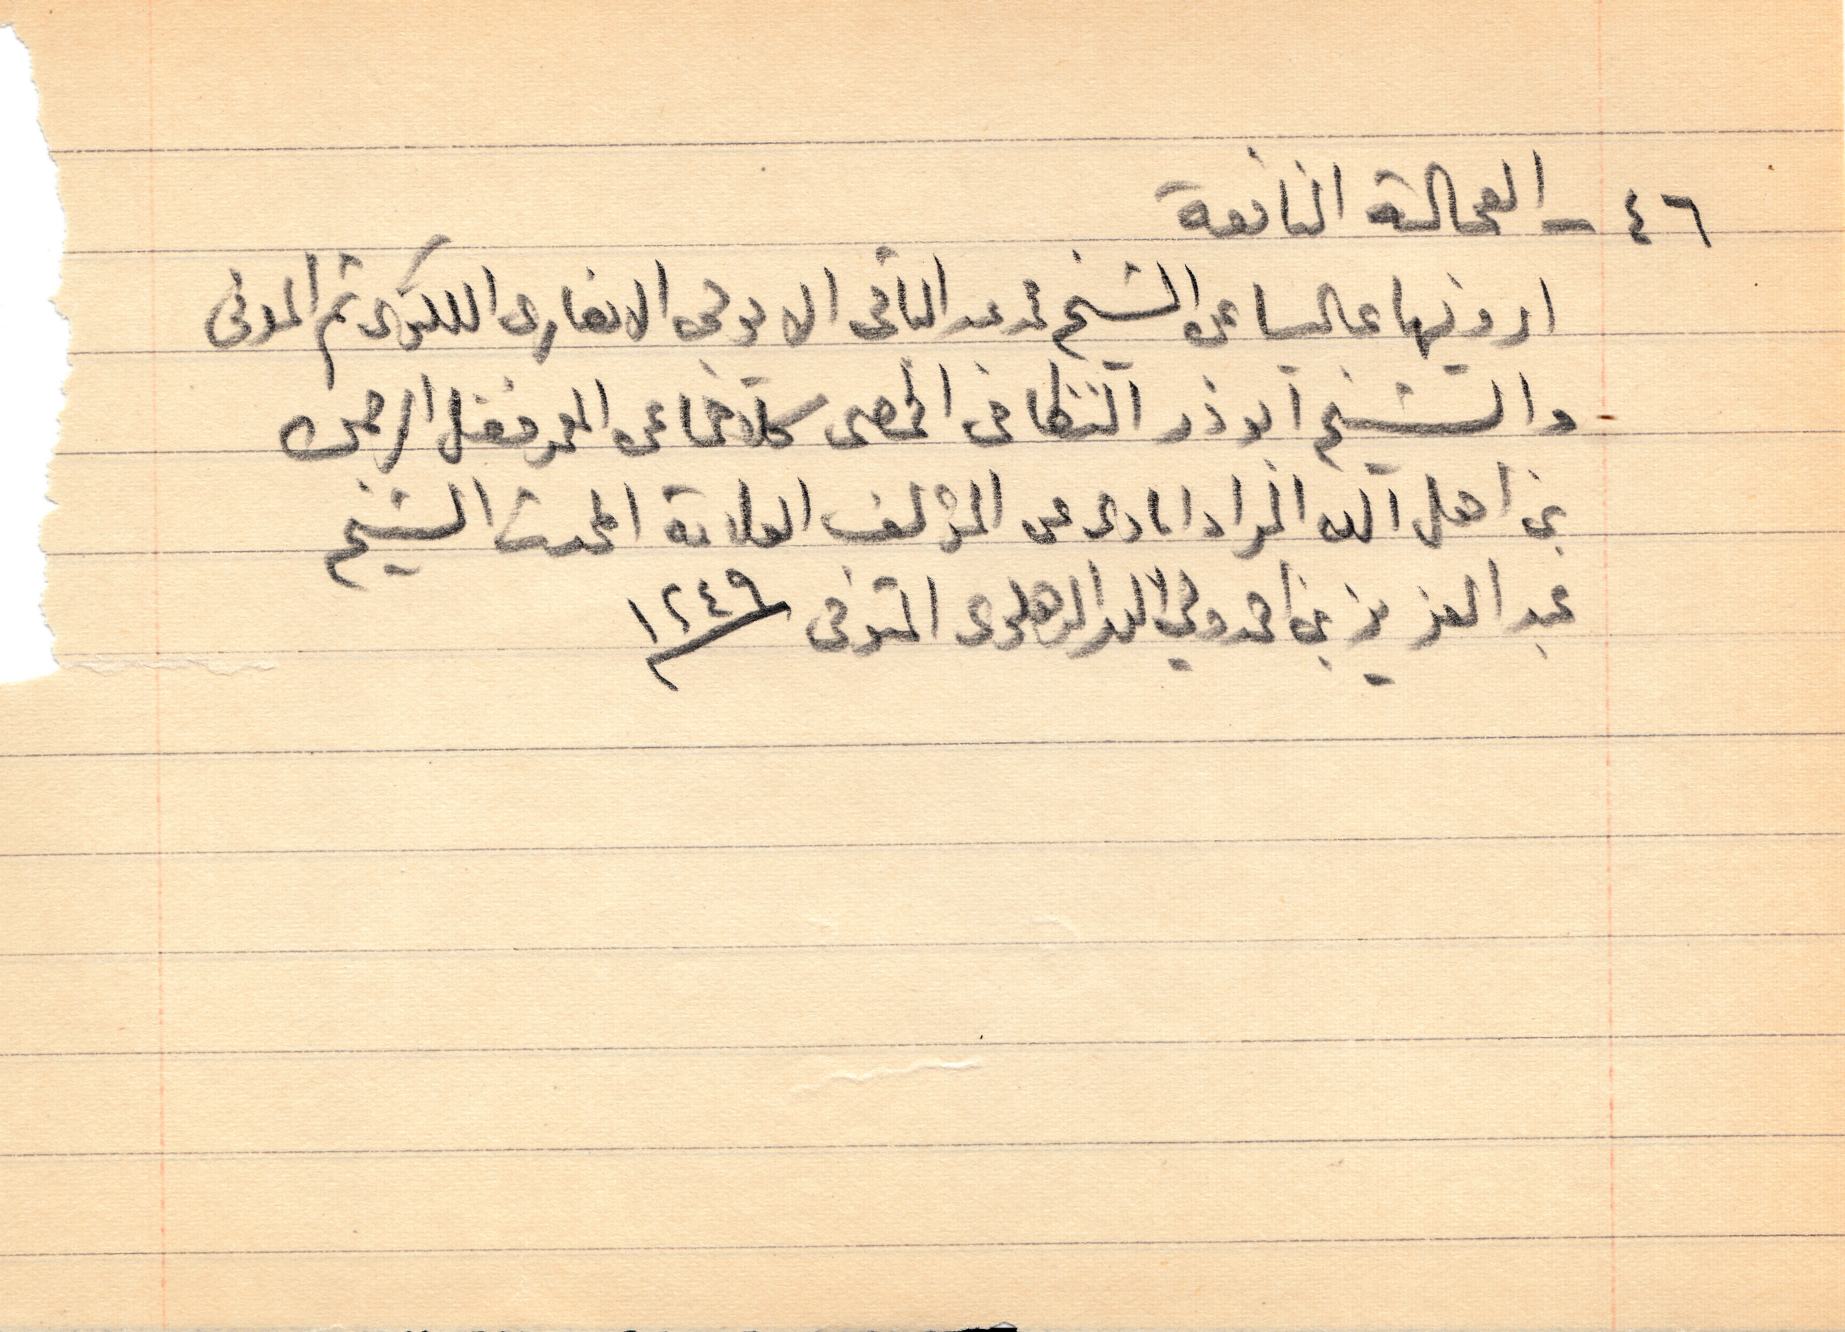 ٤٦ - العجالة النافعة
ارويها عاليا عن الشيخ محمد عبد الباقي الايوبي الانصاري اللكنوي ثم المدني
والشيخ ابوذر النظامي كلاهما عن المعمر فضل الرحمن
بن اهل الله المرادابادي عن المؤلف العلامة المحدث الشيخ
عبد العزيز بن احمد ولي الله الدهلوي المتوفى ١٢٤٩